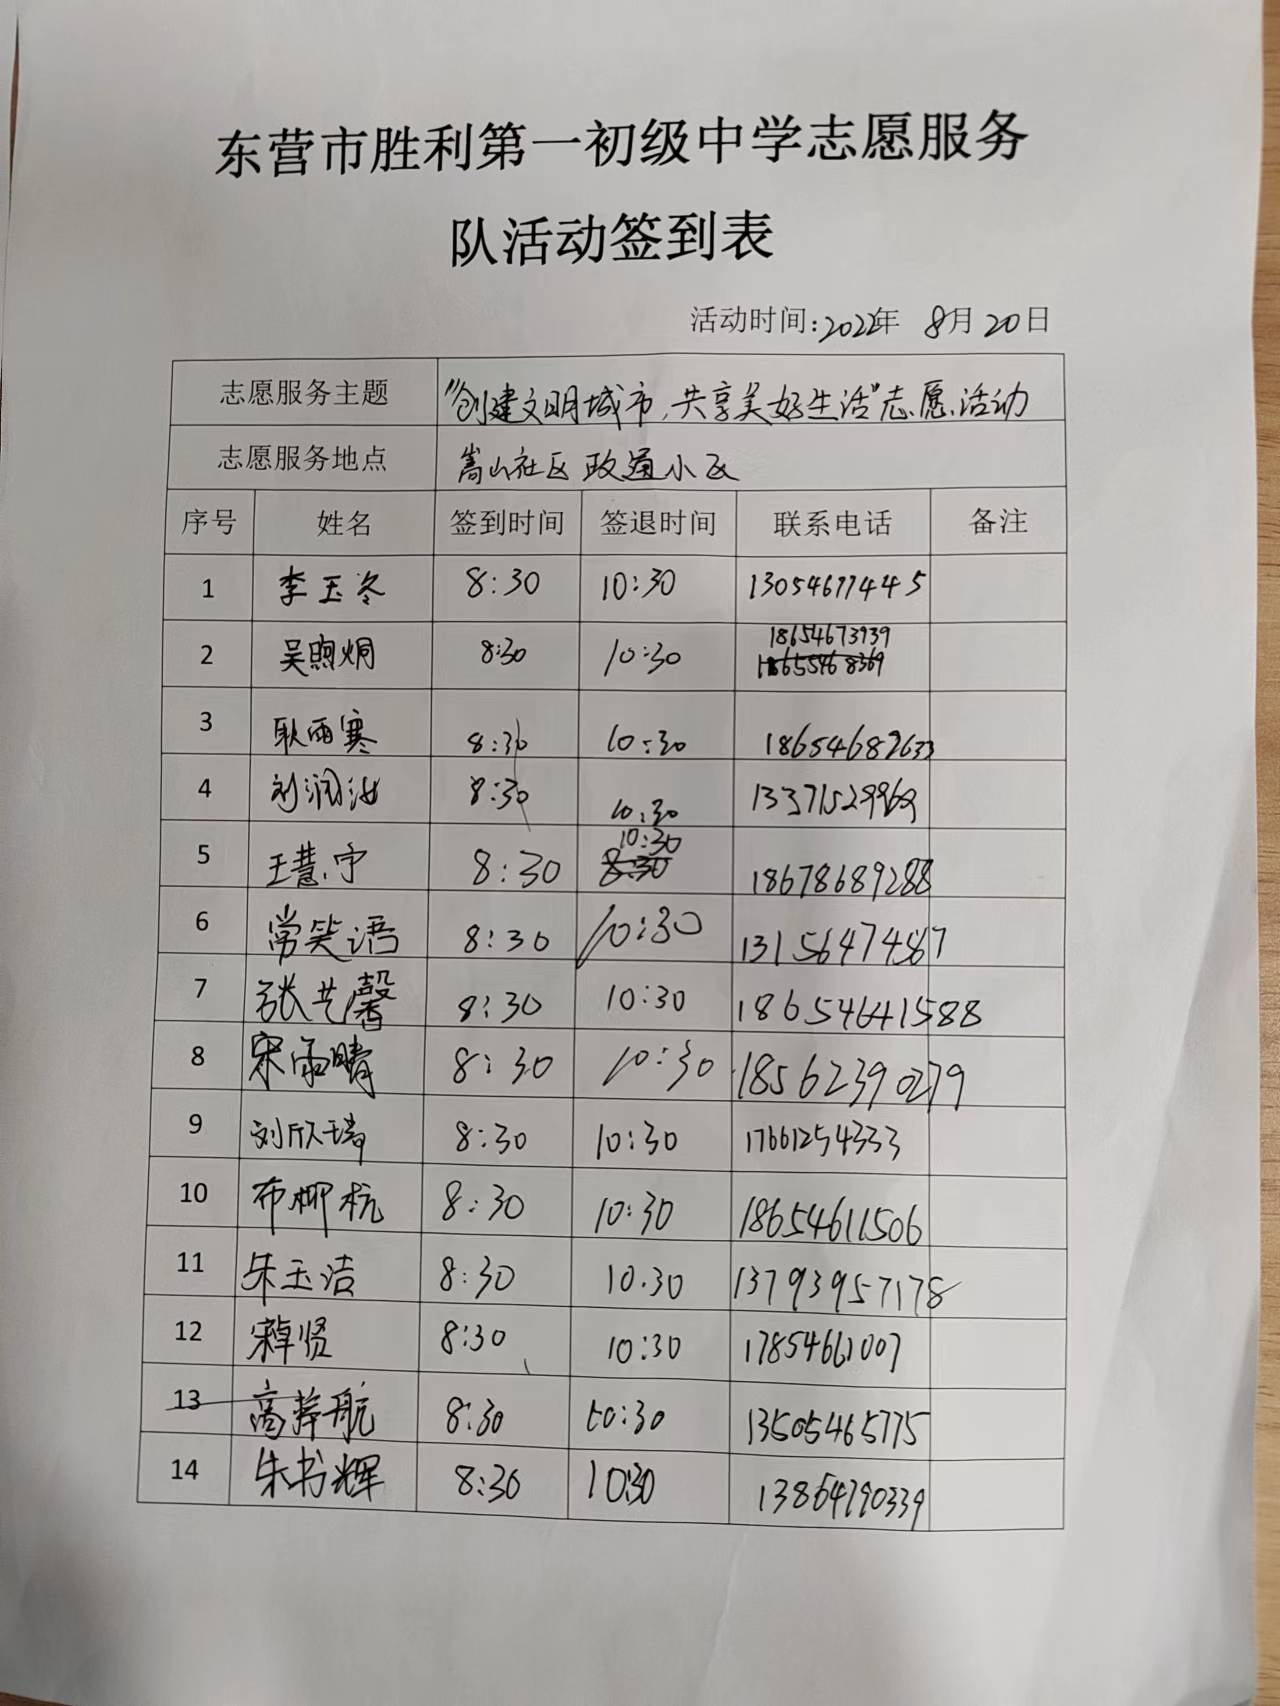 东营市胜利第一初级中学志愿服务
队活动签到表
活动时间:2022年 8月20日
志愿服务主题 "创建文明城市,共享美好生活"志愿活动
志愿服务地点 嵩山社区 政通小区
序号 姓名 签到时间 签退时间 联系电话 备注
1 李玉冬 8:30 10:30 13054677445
2 吴煦炯 8:30 10:30 18654673939
3 耿雨寒 8:30 10:30 18654682633
4 刘润汝 8:30 10:30 13371529969
5 王慧宁 8:30 10:30 18678689288
6 常笑语 8:30 10:30 13156474567
7 张艺馨 8:30 10:30 18654641588
8 宋雨晴 8:30 10:30 18562390279
9 刘欣瑞 8:30 10:30 17661254333
10 布柳杭 8:30 10:30 18654611506
11 朱玉洁 8:30 10:30 13793957178
12 8:30 10:30 17854661007
13 8:30 10:30 13505465775
14 朱书辉 8:30 10:30 13864790339